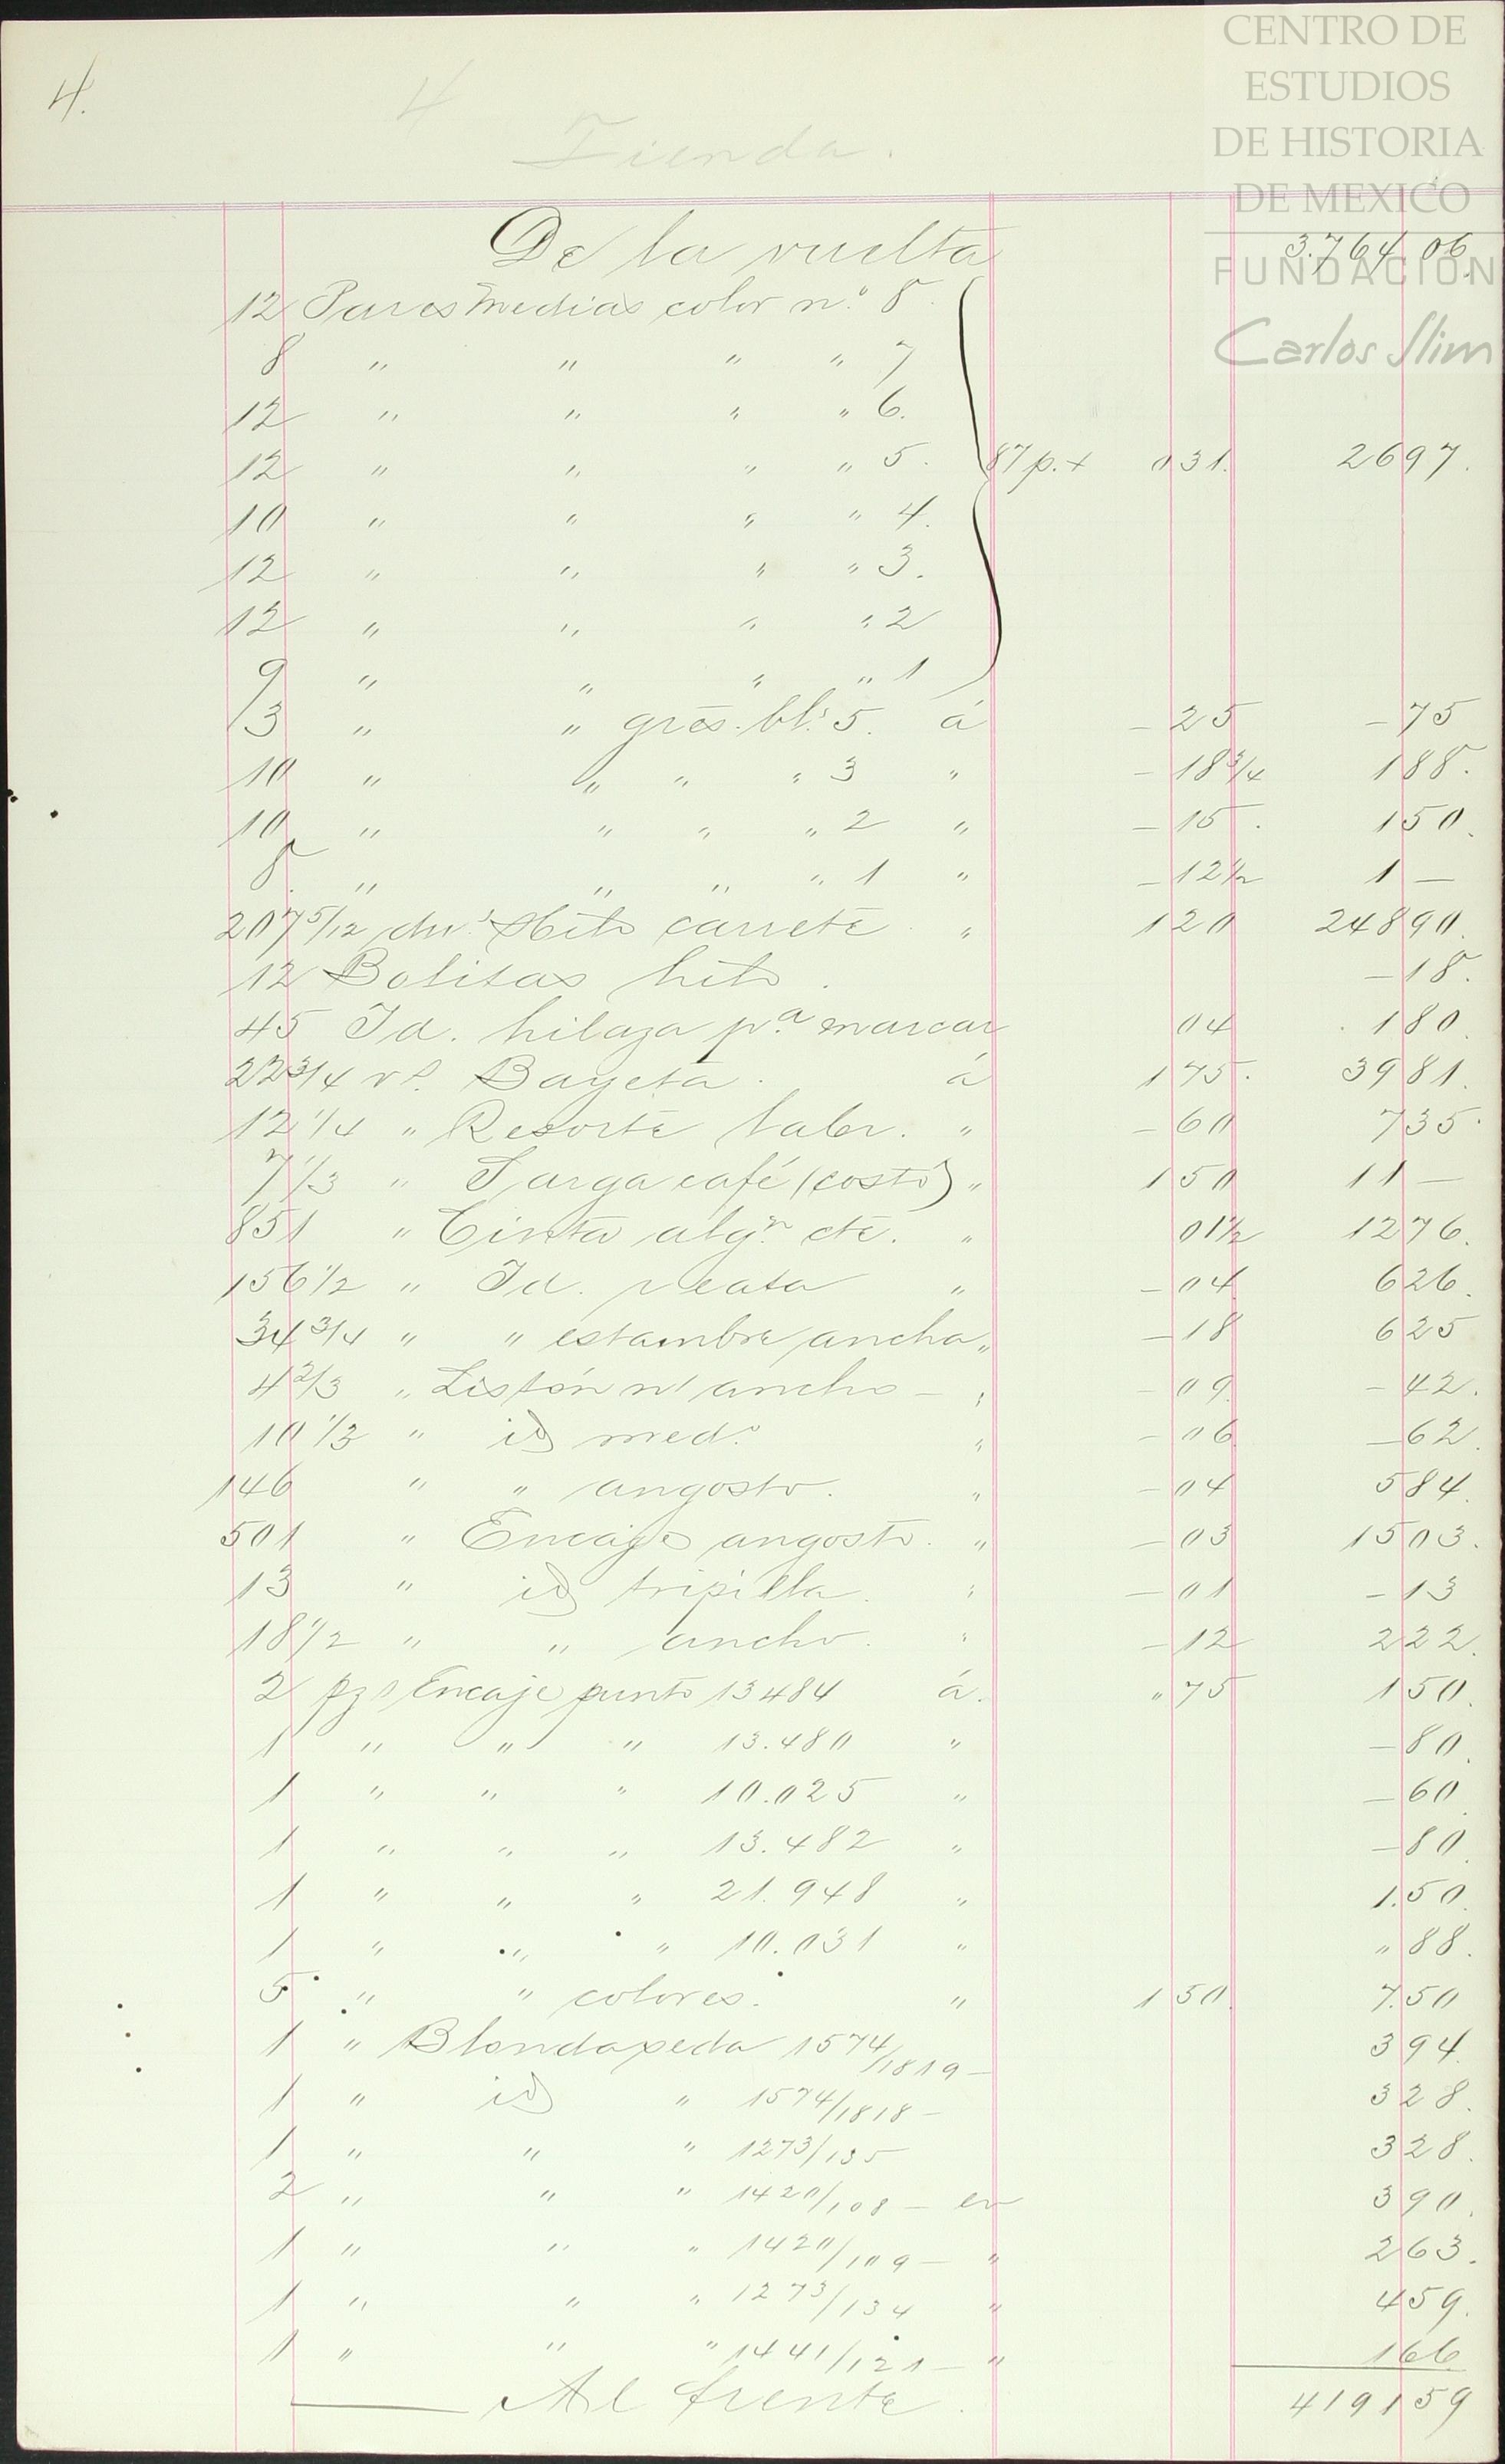 CENTRO DE
ESTUDIOS
DE HISTORIA
DE MEXICO
FUNDACIÓN
Carlos Slim
4. 4
Tienda.
De la vuelta 3.764 06.
12 Pares medias color n.º 8.
8 " " " " 7
12 " " " " 6.
12 " " " " 5. 87 p. + 0 31. 26 97.
10 " " " " 4.
12 " " " " 3.
12 " " " " 2
9 " " " " 1
3 " " gres. bl.s 5. á – 25 – 75
10 " " " " 3 " – 18 3/4 1 88.
10 " " " " 2 " – 15. 1 50.
8. " " " " 1 " – 12 1/2 1 –
207 5/12 dns. Hilo carrete " 1 20 248 90.
12 Bolitas hilo. – 18.
45 Id. hilaza p.a marcar 04 1 80.
22 3/4 vs. Bayeta. á 1 75. 39 81.
12 1/4 " Resorte labr. " – 60 7 35.
7 1/3 " Sarga café (costó) " 1 50 11 –
851 " Cinta algn. cte. " 01 1/2 12 76.
156 1/2 " Id. reata " – 04 6 26.
34 3/4 " " estambre ancha " – 18 6 25
4 2/3 " Listón n/ ancho – " – 09 – 42.
10 1/3 " id med.º " – 06 – 62.
146 " " angosto. " – 04 5 84.
501 " Encaje angosto. " – 03 15 03.
13 " id tripilla. " – 01 – 13
18 1/2 " " ancho. " – 12 2 22.
2 pzs Encaje punto 13484 á. " 75 1 50.
1 " " " 13.480 " – 80.
1 " " " 10.025 " – 60.
1 " " " 13.482 " – 80.
1 " " " 21.948 " 1.50.
1 " " " 10.031 " " 88.
5 " " colores. " 1 50. 7.50
1 " Blonda seda 1574/1819 – 3 94.
1 " id " 1574/1818 – 3 28.
1 " " " 1273/135 3 28.
2 " " " 1420/108 – en 3 90.
1 " " " 1420/109 – " 2 63.
1 " " " 1273/134 " 4 59.
1 " " " 1441/121 – " 1 66
Al frente. 4191 59